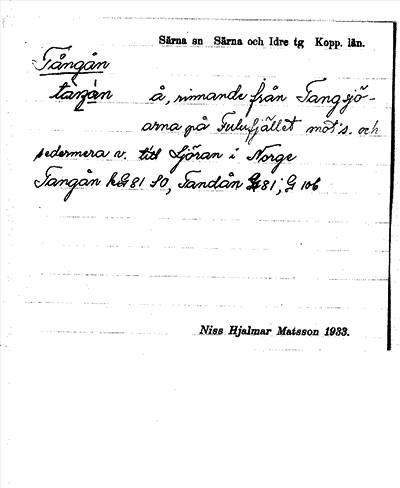 Särna sn Särna och Idre tg Kopp. län.
Tångån
å, rinnande från Tangsjö-
arna på Fulufjället mot s. och
sedermera v. till Ljöran i Norge
Tangån G 81 SO, Tandån G 81; G 106
Niss Hjalmar Matsson 1933.